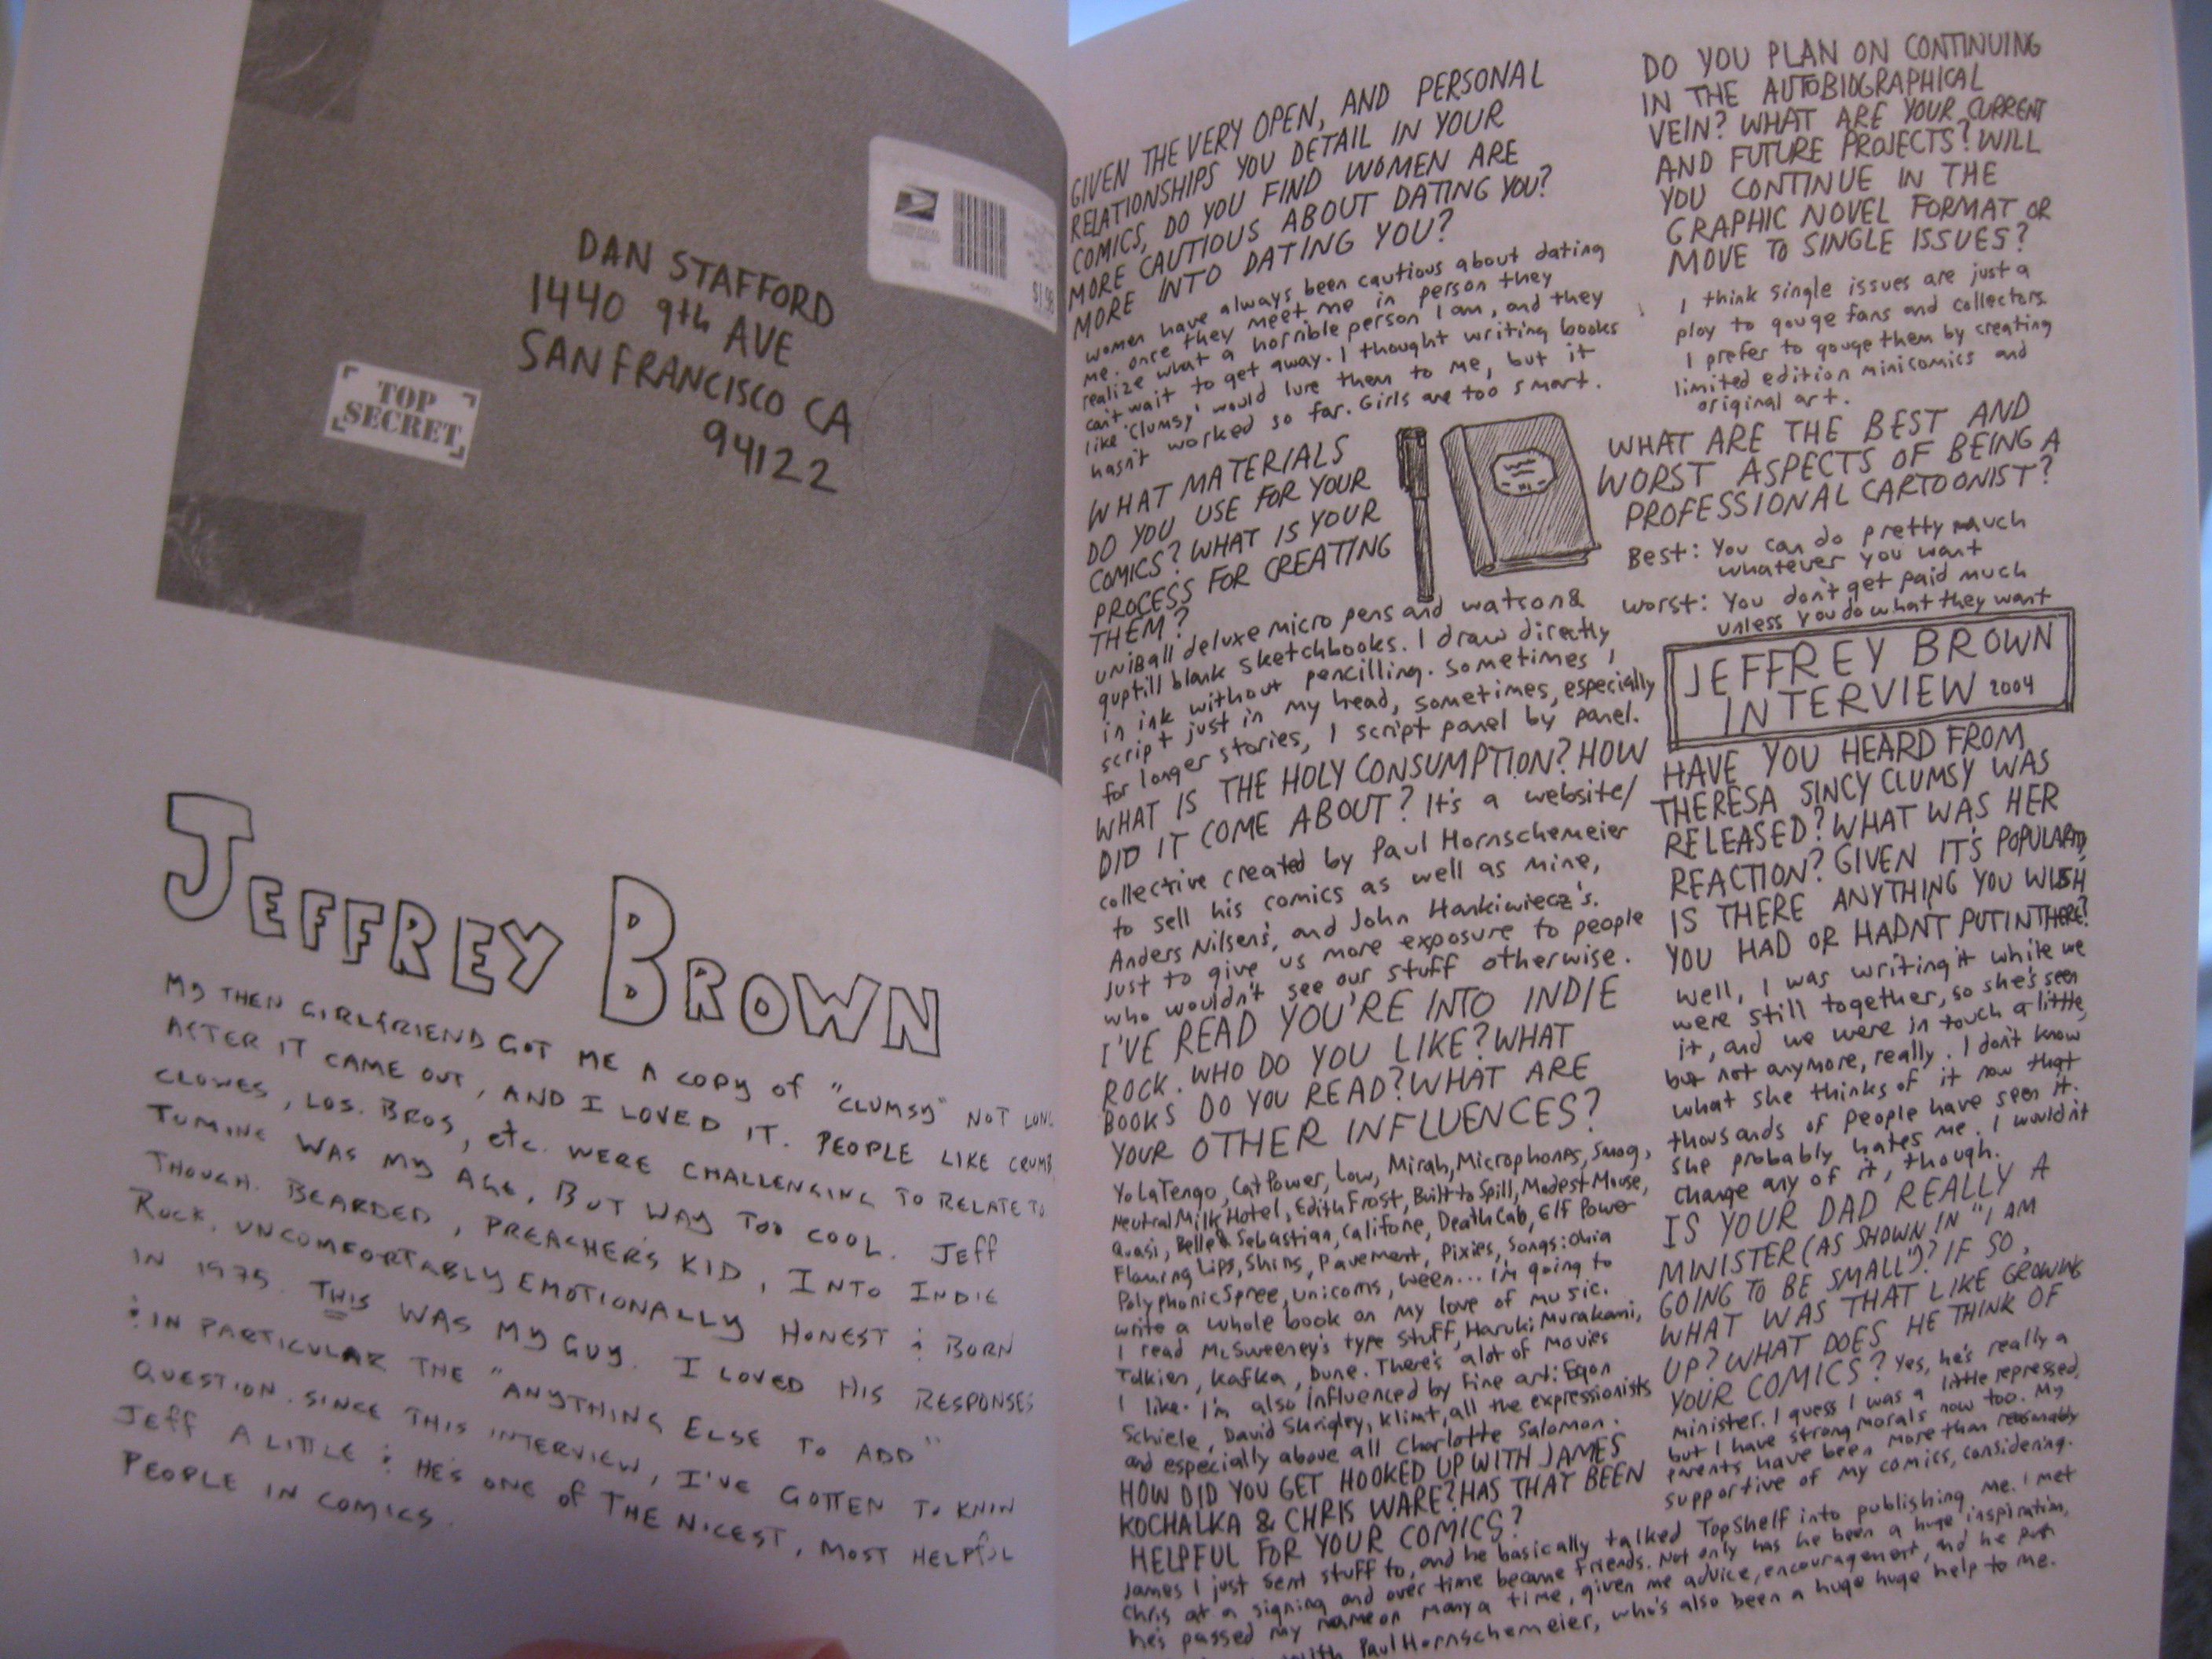 DAN STAFFORD
1440 9th AVE
SAN FRANCISCO CA
94122
TOP
SECRET
$1.98
JEFFREY BROWN
MY THEN GIRLFRIEND GOT ME A COPY OF "CLUMSY" NOT LONG
AFTER IT CAME OUT, AND I LOVED IT. PEOPLE LIKE CRUMB,
CLOWES, LOS. BROS, etc. WERE CHALLENGING TO RELATE TO.
TOMINE WAS MY AGE, BUT WAY TOO COOL. JEFF
THOUGH. BEARDED, PREACHER'S KID, INTO INDIE
ROCK, UNCOMFORTABLY EMOTIONALLY HONEST & BORN
IN 1975. THIS WAS MY GUY. I LOVED HIS RESPONSES
: IN PARTICULAR THE "ANYTHING ELSE TO ADD"
QUESTION. SINCE THIS INTERVIEW, I'VE GOTTEN TO KNOW
JEFF A LITTLE & HE'S ONE OF THE NICEST, MOST HELPFUL
PEOPLE IN COMICS.
GIVEN THE VERY OPEN, AND PERSONAL
RELATIONSHIPS YOU DETAIL IN YOUR
COMICS, DO YOU FIND WOMEN ARE
MORE CAUTIOUS ABOUT DATING YOU?
MORE INTO DATING YOU?
women have always been cautious about dating
me. once they meet me in person they
realize what a horrible person I am, and they
can't wait to get away. I thought writing books
like 'Clumsy' would lure them to me, but it
hasn't worked so far. Girls are too smart.
WHAT MATERIALS
DO YOU USE FOR YOUR
COMICS? WHAT IS YOUR
PROCESS FOR CREATING
THEM?
uniball deluxe micro pens and watson &
guptill blank sketchbooks. I draw directly
in ink without pencilling. Sometimes I
script just in my head, sometimes, especially
for longer stories, I script panel by panel.
WHAT IS THE HOLY CONSUMPTION? HOW
DID IT COME ABOUT? It's a website/
collective created by Paul Hornschemeier
to sell his comics as well as mine,
Anders Nilsen's, and John Hankiwiecz's.
Just to give us more exposure to people
who wouldn't see our stuff otherwise.
I'VE READ YOU'RE INTO INDIE
ROCK. WHO DO YOU LIKE? WHAT
BOOKS DO YOU READ? WHAT ARE
YOUR OTHER INFLUENCES?
Yo La Tengo, Cat Power, Low, Mirah, Microphones, Smog,
Neutral Milk Hotel, Edith Frost, Built to Spill, Modest Mouse,
Quasi, Belle & Sebastian, Califone, Death Cab, Elf Power
Flaming Lips, Shins, Pavement, Pixies, Songs: Ohia
Polyphonic Spree, Unicorns, Ween... I'm going to
write a whole book on my love of music.
I read McSweeney's type stuff, Haruki Murakami,
Tolkien, Kafka, Dune. There's alot of movies
I like. I'm also influenced by fine art: Egon
Schiele, David Shrigley, Klimt, all the expressionists
and especially above all Charlotte Salomon.
HOW DID YOU GET HOOKED UP WITH JAMES
KOCHALKA & CHRIS WARE? HAS THAT BEEN
HELPFUL FOR YOUR COMICS?
James I just sent stuff to, and he basically talked TopShelf into publishing me. I met
Chris at a signing and over time became friends. Not only has he been a huge inspiration,
he's passed my name on many a time, given me advice, encouragement, and he put
with Paul Hornschemeier, who's also been a huge huge help to me.
DO YOU PLAN ON CONTINUING
IN THE AUTOBIOGRAPHICAL
VEIN? WHAT ARE YOUR CURRENT
AND FUTURE PROJECTS? WILL
YOU CONTINUE IN THE
GRAPHIC NOVEL FORMAT OR
MOVE TO SINGLE ISSUES?
I think single issues are just a
ploy to gouge fans and collectors.
I prefer to gouge them by creating
limited edition minicomics and
original art.
WHAT ARE THE BEST AND
WORST ASPECTS OF BEING A
PROFESSIONAL CARTOONIST?
Best: You can do pretty much
whatever you want
worst: You don't get paid much
unless you do what they want
JEFFREY BROWN
INTERVIEW 2004
HAVE YOU HEARD FROM
THERESA SINCY CLUMSY WAS
RELEASED? WHAT WAS HER
REACTION? GIVEN IT'S POPULARITY,
IS THERE ANYTHING YOU WISH
YOU HAD OR HADN'T PUT IN THERE?
Well, I was writing it while we
were still together, so she's seen
it, and we were in touch a little,
but not anymore, really. I don't know
what she thinks of it now that
thousands of people have seen it.
She probably hates me. I wouldn't
change any of it, though.
IS YOUR DAD REALLY A
MINISTER (AS SHOWN IN "I AM
GOING TO BE SMALL")? IF SO,
WHAT WAS THAT LIKE GROWING
UP? WHAT DOES HE THINK OF
YOUR COMICS? Yes, he's really a
minister. I guess I was a little repressed,
but I have strong morals now too. My
parents have been more than reasonably
supportive of my comics, considering.